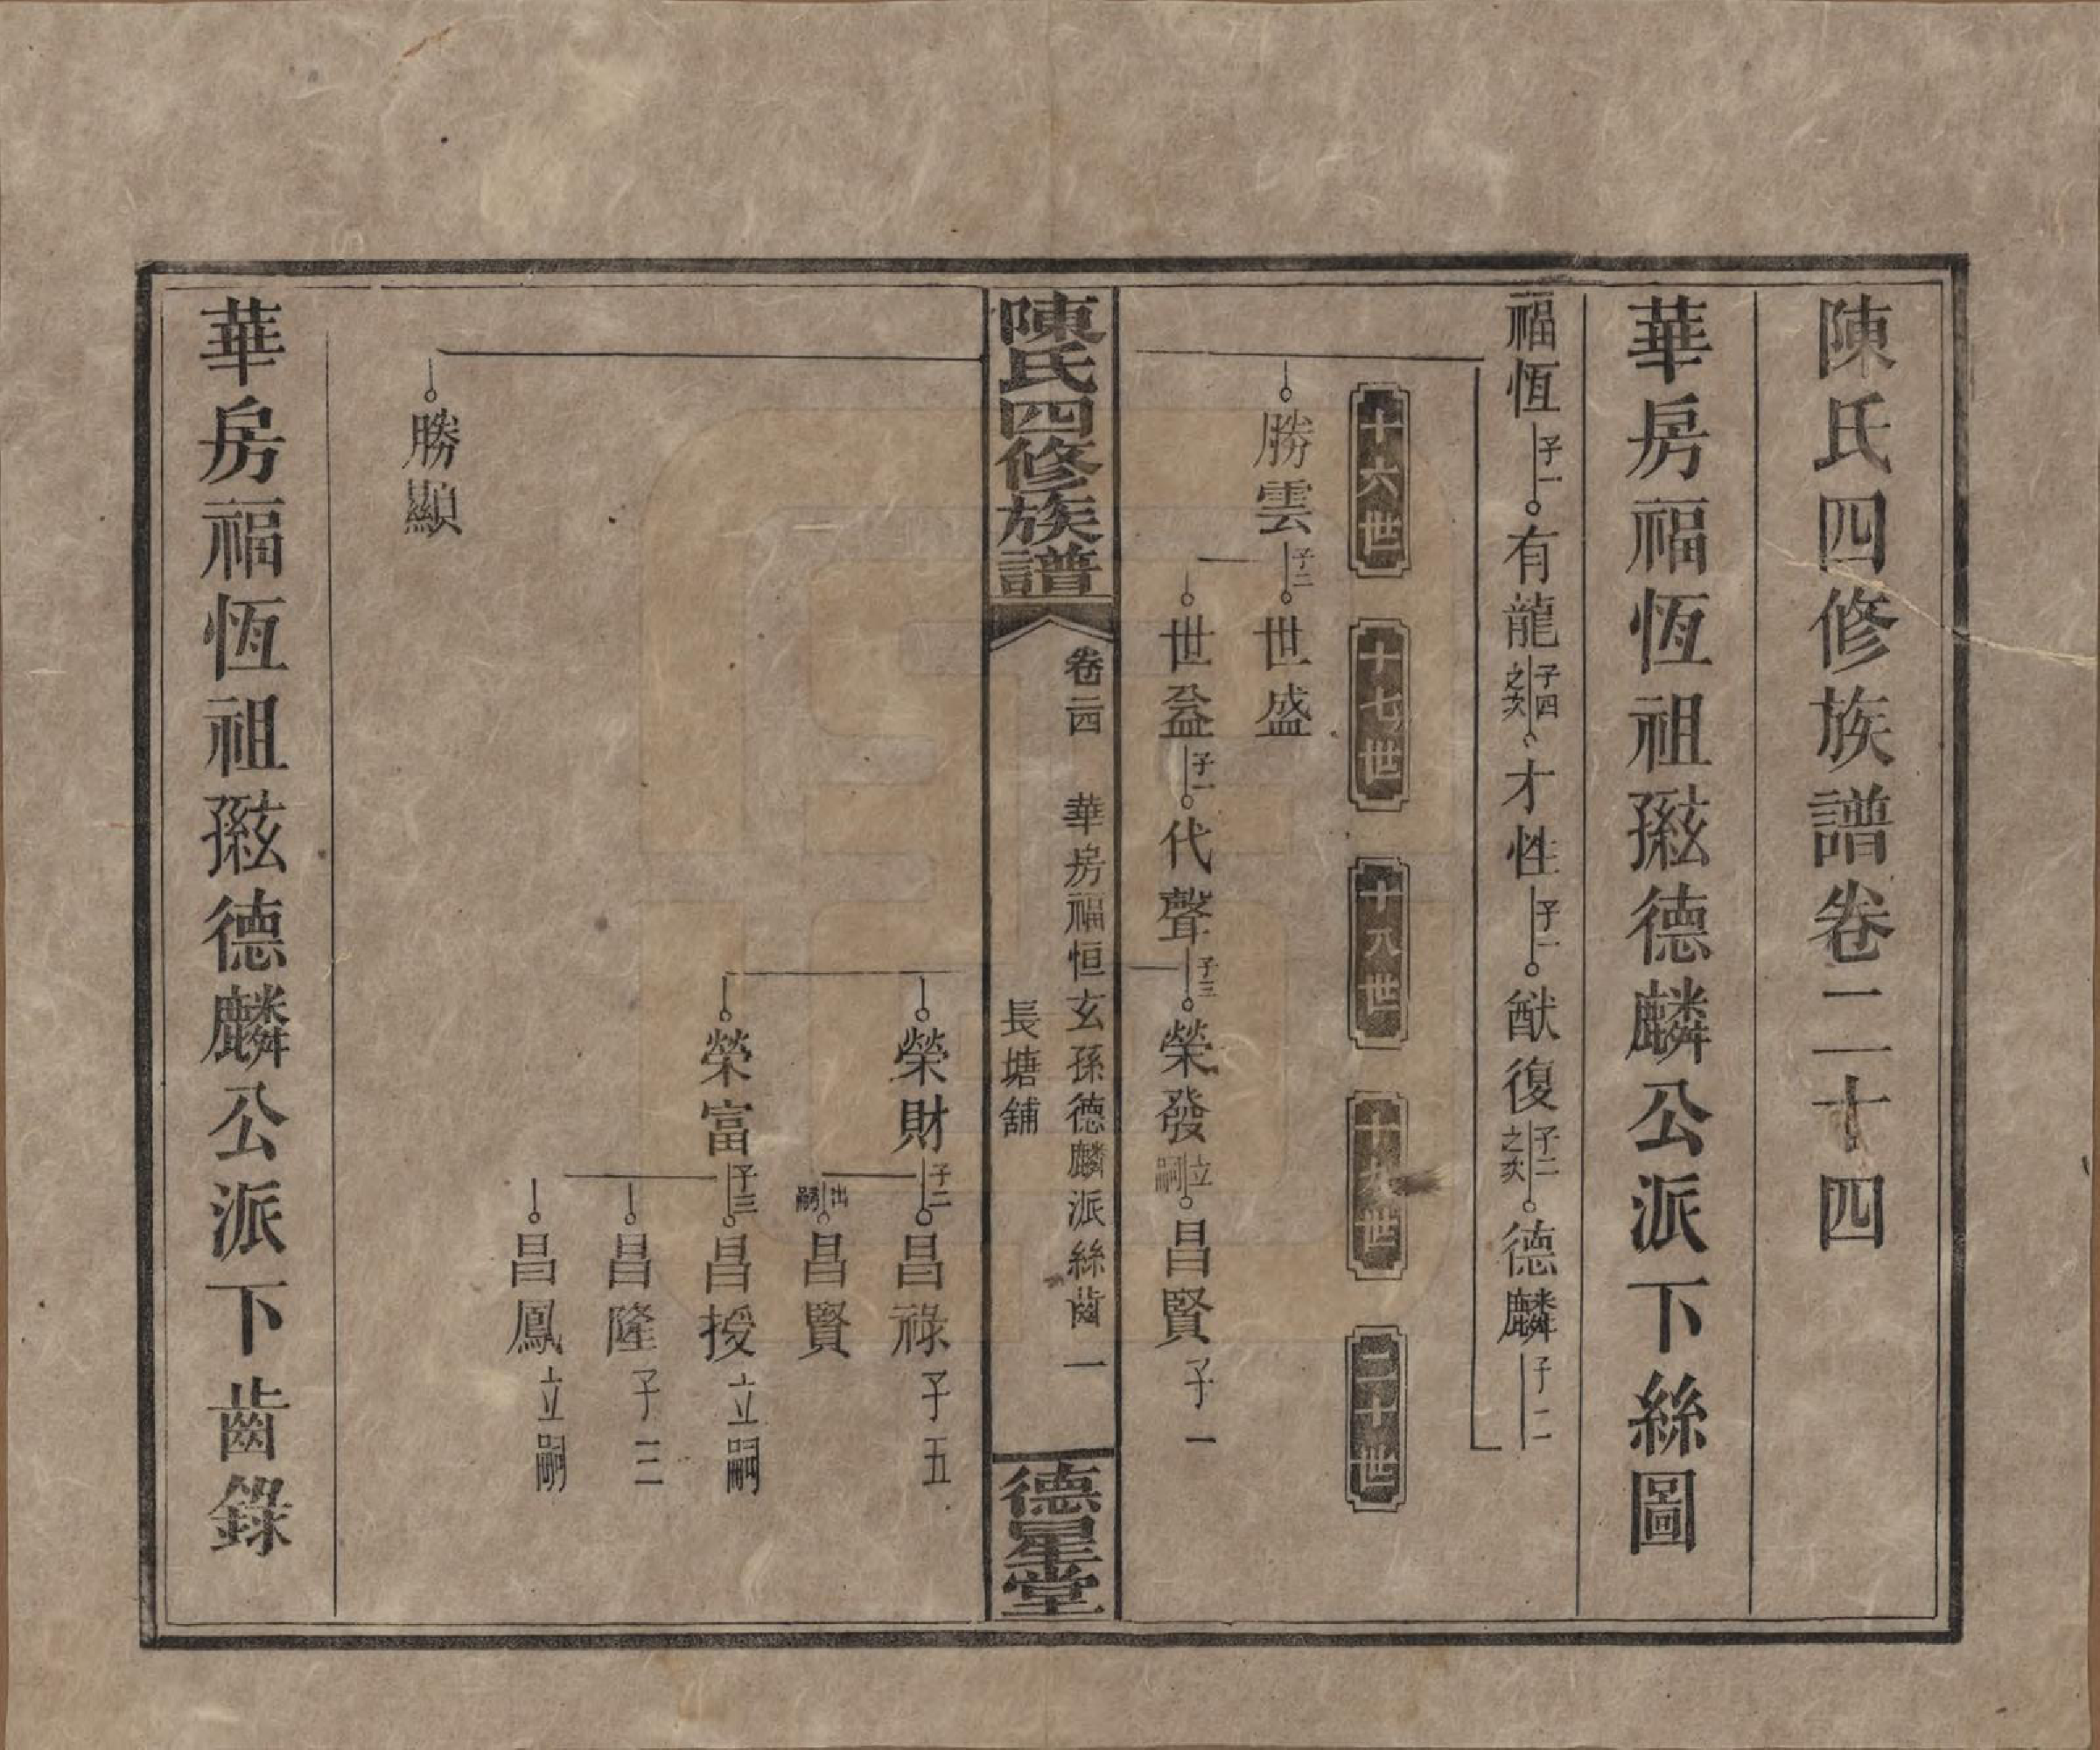 陳氏四修族譜卷二十四
華房福恆祖孫玆德麟公派下絲圖
福恆 子一 有龍 子四之次 才性 子一 猷復 子二之次 德麟 子二
十六世 十七世 十八世 十九世 二十世
勝雲 子二 世盛
世益 子一 代聲 子三 榮發 立嗣 昌賢 子一
陳氏四修族譜 卷二四 華房福恒玄孫德麟派絲齒 一 德星堂
長塘舖
榮財 子二 昌祿 子五
出嗣 昌賢
榮富 子三 昌授 立嗣
昌隆 子三
昌鳳 立嗣
勝顯
華房福恆祖孫玆德麟公派下齒錄